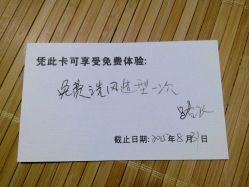 凭此卡可享受免费体验:
免费洗风造型一次
截止日期:2015年8月31日